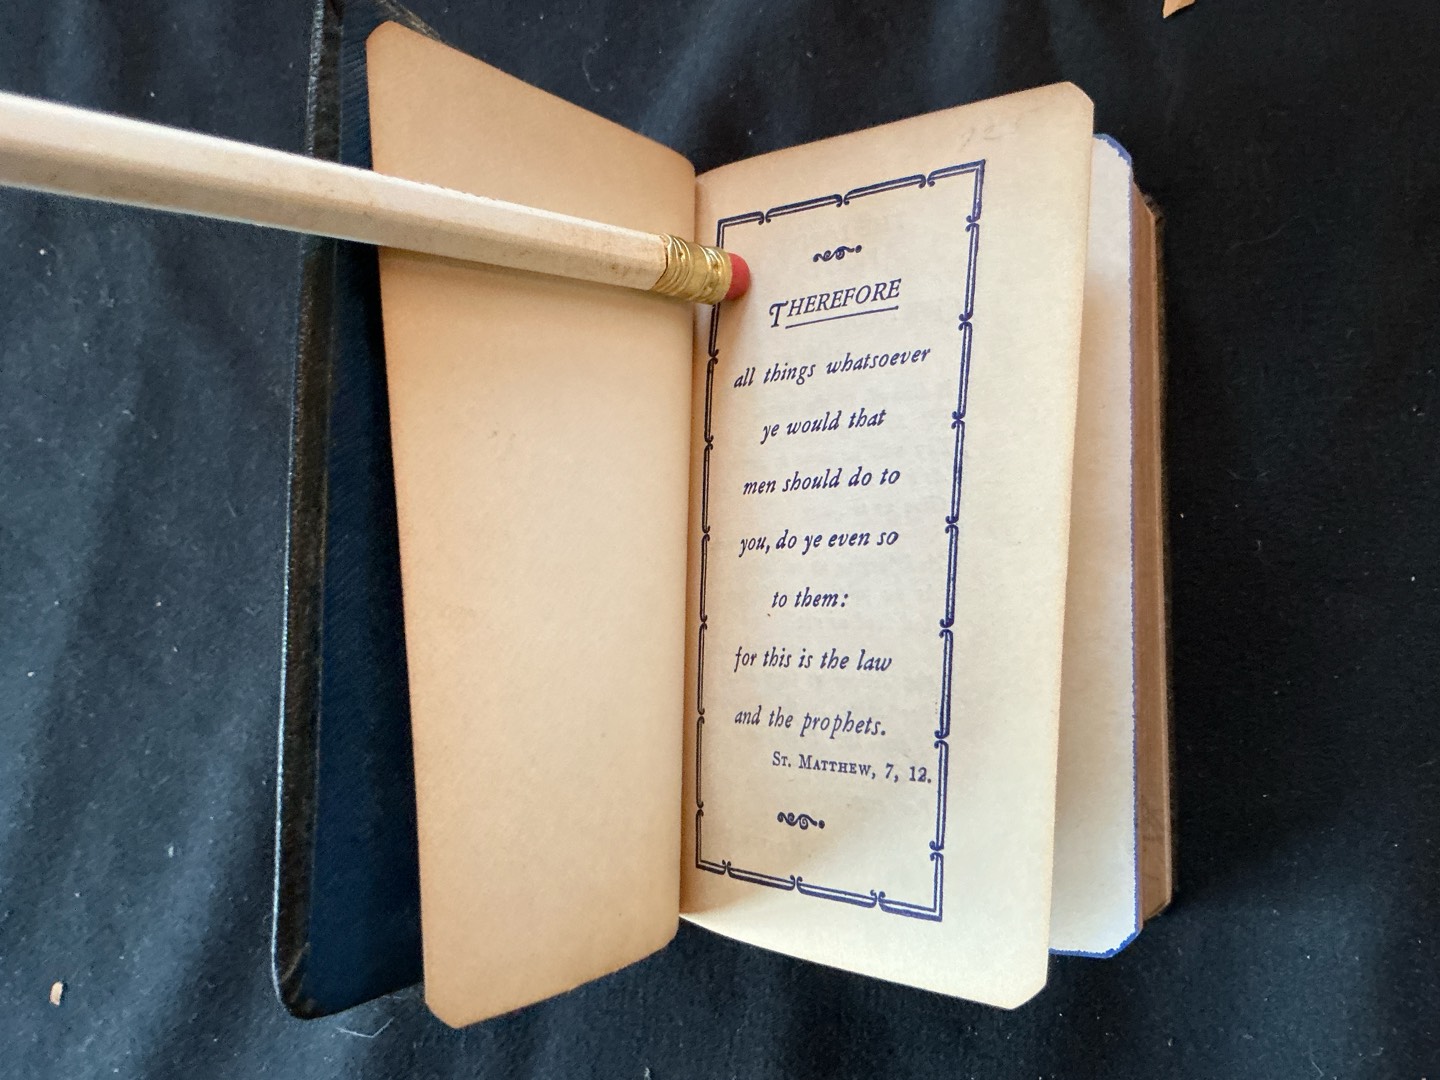 THEREFORE
all things whatsoever
ye would that
men should do to
you, do ye even so
to them:
for this is the law
and the prophets.
ST. MATTHEW, 7, 12.